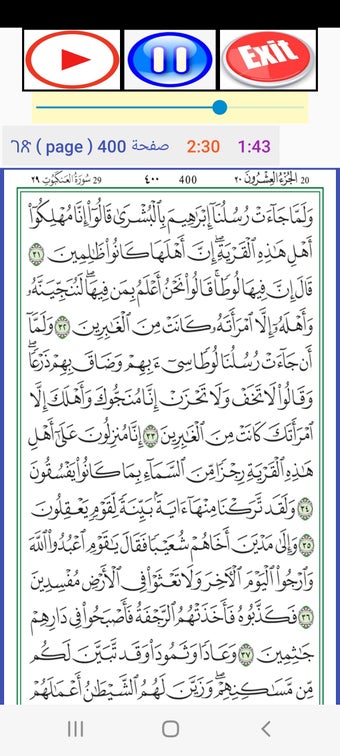 Exit
ገጽ ( page ) 400 صفحة 2:30 1:43
٢٩ سُورَةُ العَنكَبُوتِ 29 ٤٠٠ 400 الجُزْءُ العِشْرُونَ ٢٠ 20
وَلَمَّا جَاءَتْ رُسُلُنَا إِبْرَاهِيمَ بِالْبُشْرَىٰ قَالُوا إِنَّا مُهْلِكُوا
أَهْلِ هَٰذِهِ الْقَرْيَةِ ۖ إِنَّ أَهْلَهَا كَانُوا ظَالِمِينَ ٣١
قَالَ إِنَّ فِيهَا لُوطًا ۚ قَالُوا نَحْنُ أَعْلَمُ بِمَن فِيهَا ۖ لَنُنَجِّيَنَّهُ
وَأَهْلَهُ إِلَّا امْرَأَتَهُ كَانَتْ مِنَ الْغَابِرِينَ ٣٢ وَلَمَّا
أَن جَاءَتْ رُسُلُنَا لُوطًا سِيءَ بِهِمْ وَضَاقَ بِهِمْ ذَرْعًا
وَقَالُوا لَا تَخَفْ وَلَا تَحْزَنْ ۖ إِنَّا مُنَجُّوكَ وَأَهْلَكَ إِلَّا
امْرَأَتَكَ كَانَتْ مِنَ الْغَابِرِينَ ٣٣ إِنَّا مُنزِلُونَ عَلَىٰ أَهْلِ
هَٰذِهِ الْقَرْيَةِ رِجْزًا مِّنَ السَّمَاءِ بِمَا كَانُوا يَفْسُقُونَ
٣٤ وَلَقَد تَّرَكْنَا مِنْهَا آيَةً بَيِّنَةً لِّقَوْمٍ يَعْقِلُونَ
٣٥ وَإِلَىٰ مَدْيَنَ أَخَاهُمْ شُعَيْبًا فَقَالَ يَا قَوْمِ اعْبُدُوا اللَّهَ
وَارْجُوا الْيَوْمَ الْآخِرَ وَلَا تَعْثَوْا فِي الْأَرْضِ مُفْسِدِينَ
٣٦ فَكَذَّبُوهُ فَأَخَذَتْهُمُ الرَّجْفَةُ فَأَصْبَحُوا فِي دَارِهِمْ
جَاثِمِينَ ٣٧ وَعَادًا وَثَمُودَ وَقَد تَّبَيَّنَ لَكُم
مِّن مَّسَاكِنِهِمْ ۖ وَزَيَّنَ لَهُمُ الشَّيْطَانُ أَعْمَالَهُمْ